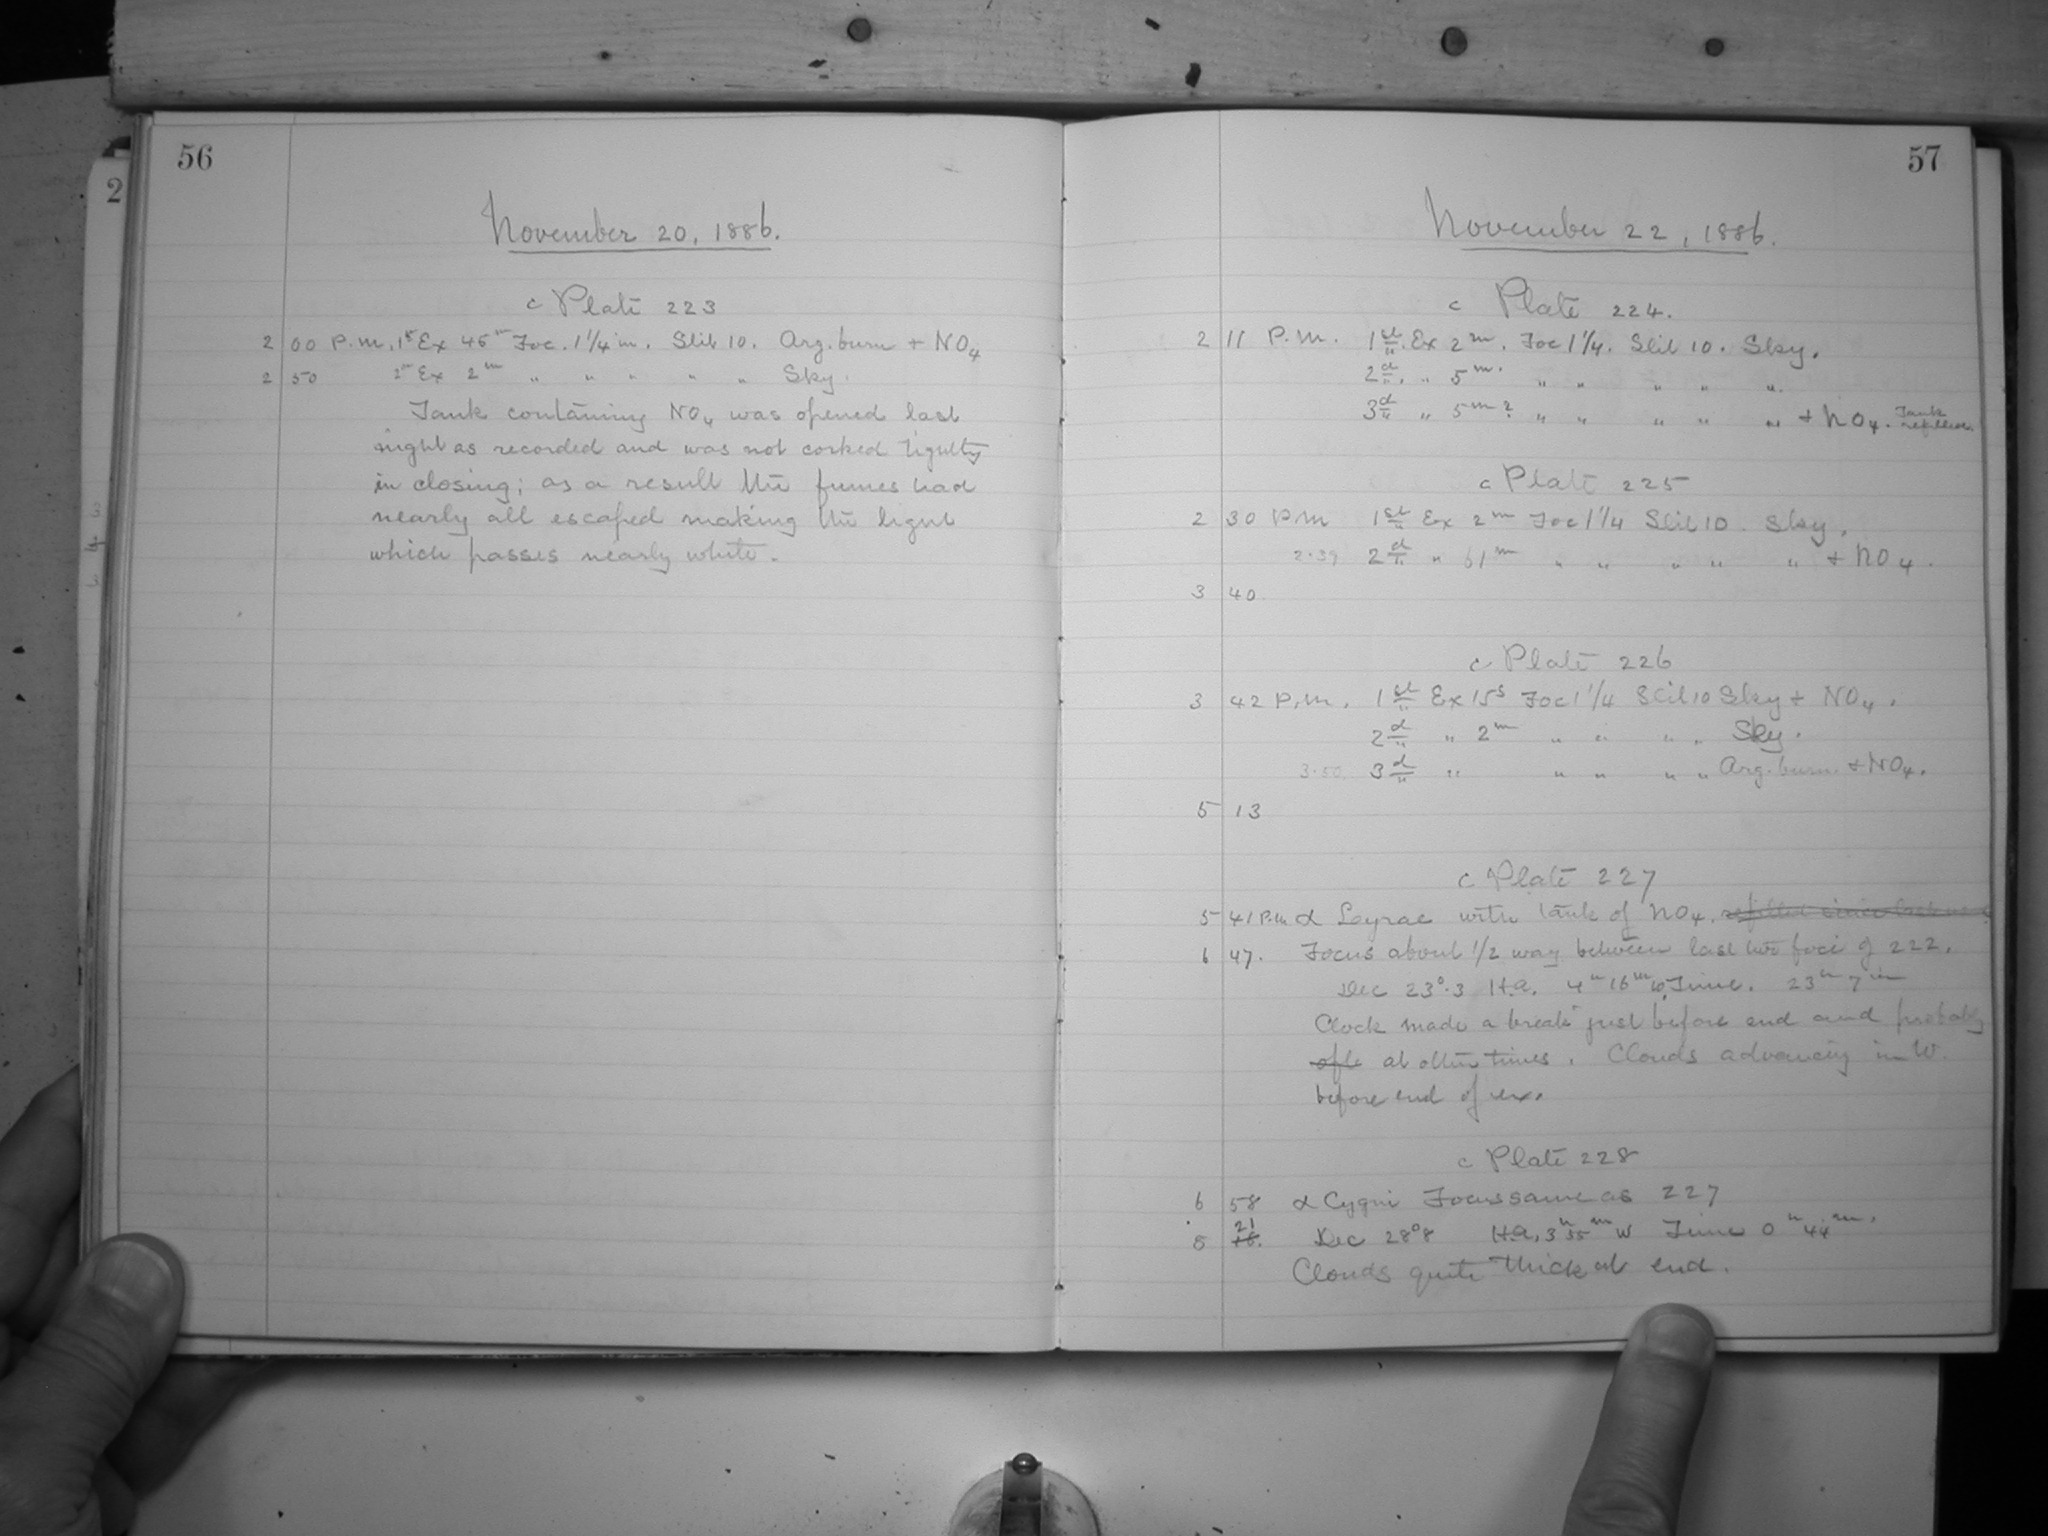 56
2
November 20, 1886.
c Plate 223
2 00 P.M. 1st Ex 45m Foc. 1 1/4 in. Slit 10. Arg. burn + NO4
2 50 2d Ex 2m " " " " " Sky.
Tank containing NO4 was opened last
night as recorded and was not corked tightly
in closing; as a result the fumes had
nearly all escaped making the light
which passes nearly white.
57
November 22, 1886.
c Plate 224.
2 11 P.M. 1st Ex 2m. Foc 1 1/4. Slit 10. Sky.
2d " 5m. " " " " "
3d " 5m? " " " " " + NO4. Tank refilled.
c Plate 225
2 30 P.M 1st Ex 2m Foc 1 1/4 Slit 10. Sky.
2.39 2d " 61m " " " " " + NO4.
3 40
c Plate 226
3 42 P.M. 1st Ex 15s Foc 1 1/4 Slit 10 Sky + NO4.
2d " 2m " " " " Sky.
3.50 3d " " " " " Arg. burn + NO4.
5 13
c Plate 227
5 41 P.M α Lyrae with tank of NO4. refilled since last
6 47. Focus about 1/2 way between last two foci of 222.
Dec 23°.3 H.a. 4h 16m W. Time. 23h 7m
Clock made a break just before end and probably
at other times. Clouds advancing in W.
before end of ex.
c Plate 228
6 58 α Cygni Focus same as 227
8 21 Dec 28°8 H.a. 3h 55m W Time 0h 44m.
Clouds quite thick at end.